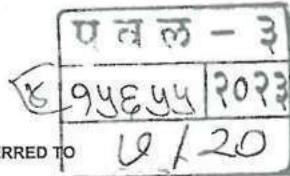 प व ल - ३
४ १५६५५ २०२३
ERRED TO ७ / 20